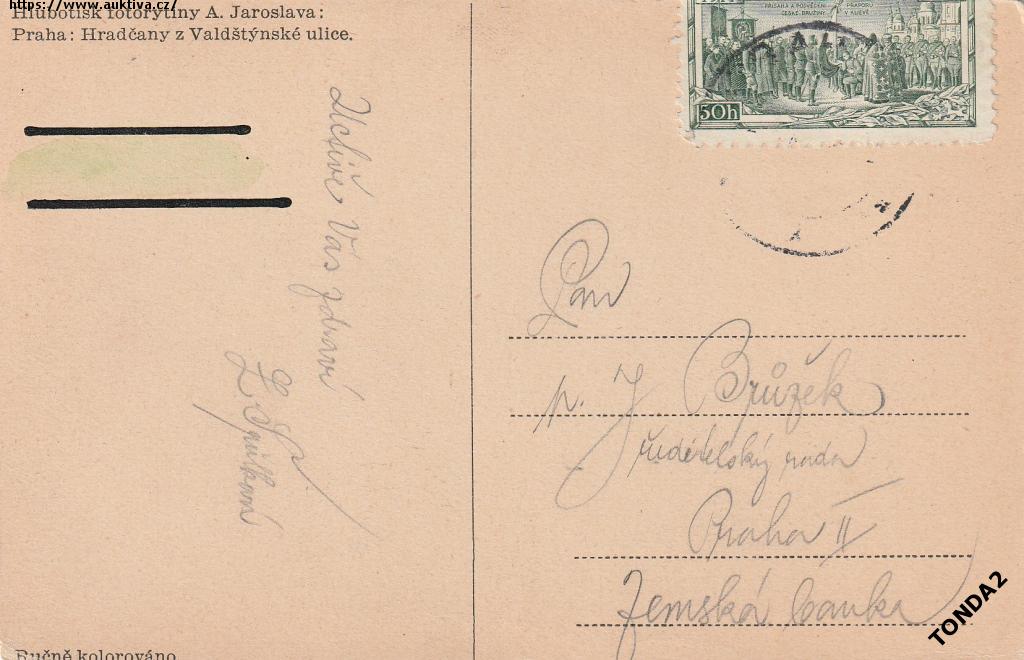 https://www.auktiva.cz/
Hlubotisk fotorytiny A. Jaroslava:
Praha: Hradčany z Valdštýnské ulice.
PŘÍSAHA A POSVĚCENÍ PRAPORU
ČESKÉ DRUŽINY V KIJEVĚ
50h
Uctivě Vás zdraví
Pan
p. J Brůžek
ředitelský rada
Praha II
Zemská banka
Ručně kolorováno
TONDA2